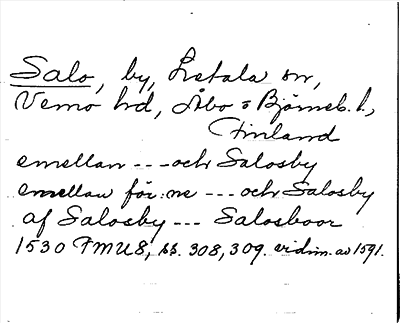 Salo, by, Letala sn,
Vemo hd, Åbo o Björneb. l,
Finland
emellan --- och Salosby
emellan för:ne --- och Salosby
af Salosby --- Salosboar
1530 FMU 8, ss. 308, 309. vidim. av 1591.